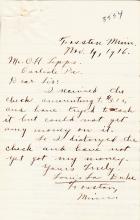 3554
Minn.
Nov. 9, 1916.
Mr. O H Lipps.
Carlisle Pa.
Dear Sir:
I received the
check amounting to
and have tryed to cash
it but could not get
any money on it.
So I destroyed the
check and have not
yet got my money.
Yours Truly
Minn